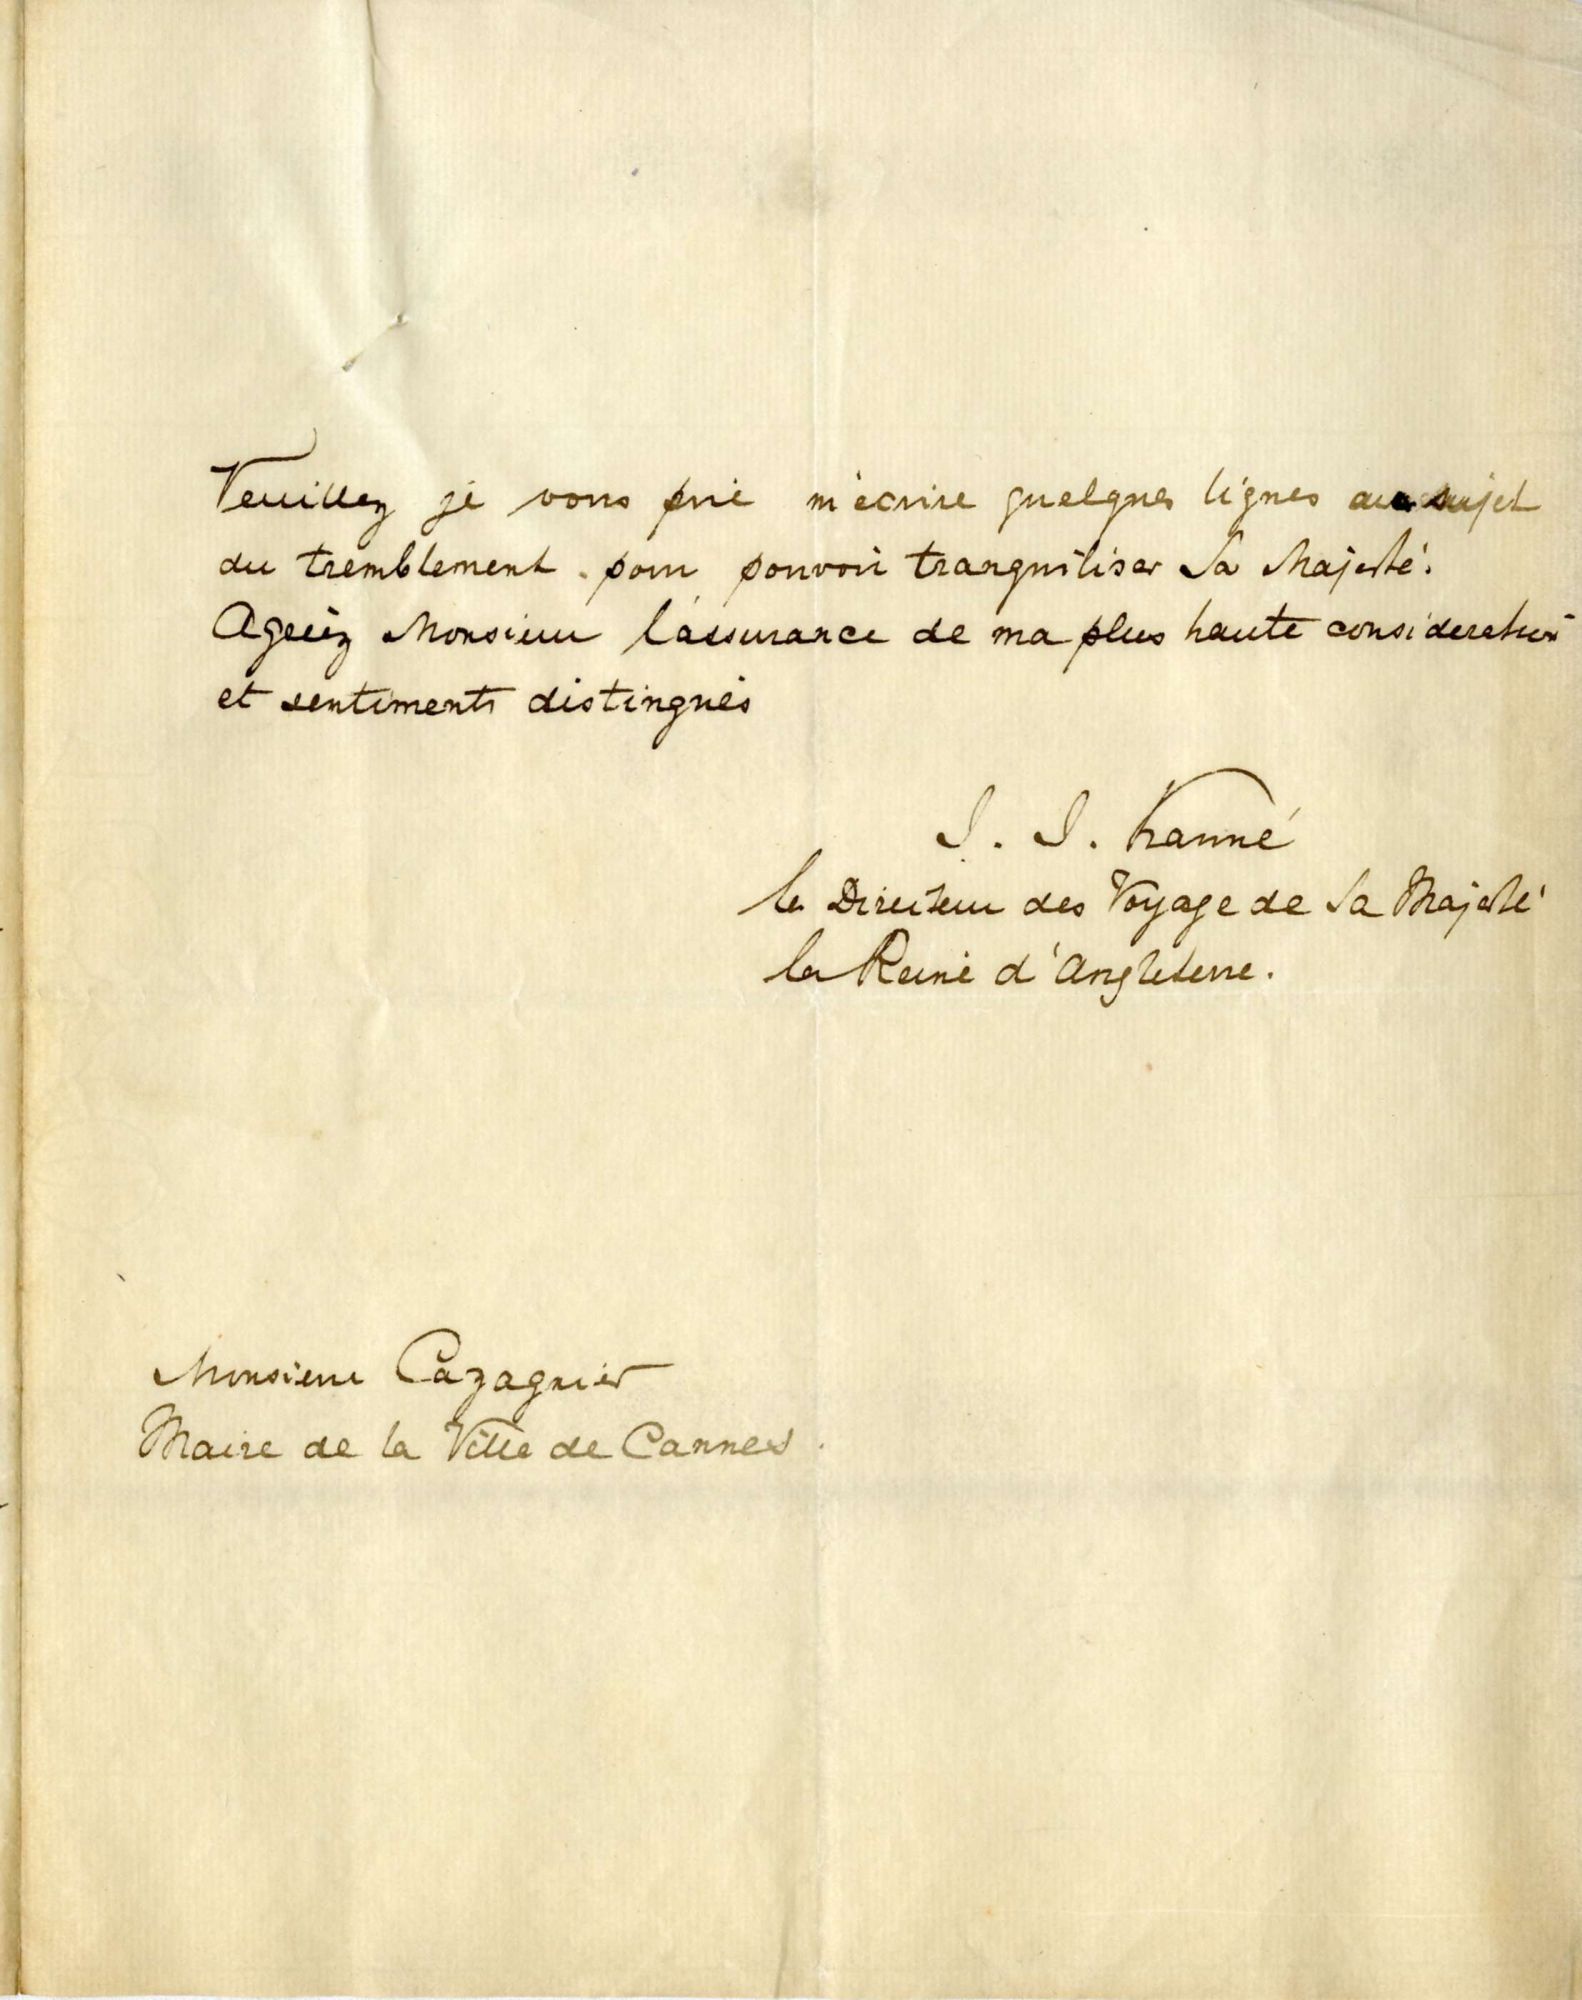 Veuillez je vous prie m'ecrire quelques lignes au sujet
du tremblement pour pouvoir tranquiliser Sa Majesté.
Agreéz Monsieur l'assurance de ma plus haute consideration
et sentiments distingués
J. J. Kanné
le Directeur des Voyage de Sa Majesté
la Reine d'Angleterre.
Monsieur Cazagnier
Maire de la Ville de Cannes.